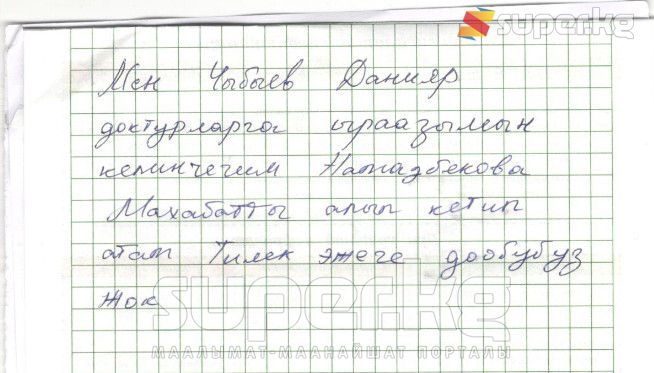 super.kg
Мен Чыбыев Данияр
доктурларга ыраазымын
келинчегим Намазбекова
Махабатты алып кетип
атам Тилек эжеге дообубуз
жок
super.kg
МААЛЫМАТ-МААНАЙШАТ ПОРТАЛЫ